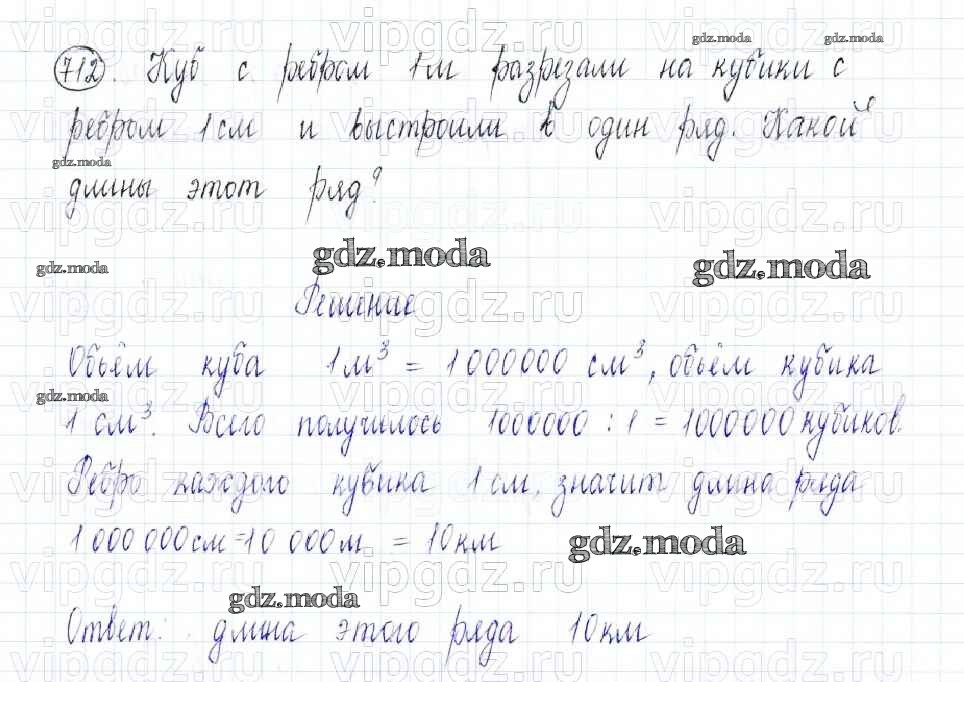 712. Куб с ребром 1м разрезали на кубики с
ребром 1см и выстроили в один ряд. Какой
длины этот ряд?
Решение
Объём куба 1м³ = 1 000000 см³, объём кубика
1 см³. Всего получилось 1000000 : 1 = 1000000 кубиков.
Ребро каждого кубика 1 см, значит длина ряда
1 000 000см = 10 000м = 10км
Ответ: длина этого ряда 10км
gdz.moda
gdz.moda
gdz.moda
gdz.moda
gdz.moda
gdz.moda
gdz.moda
gdz.moda
gdz.moda
vipgdz.ru